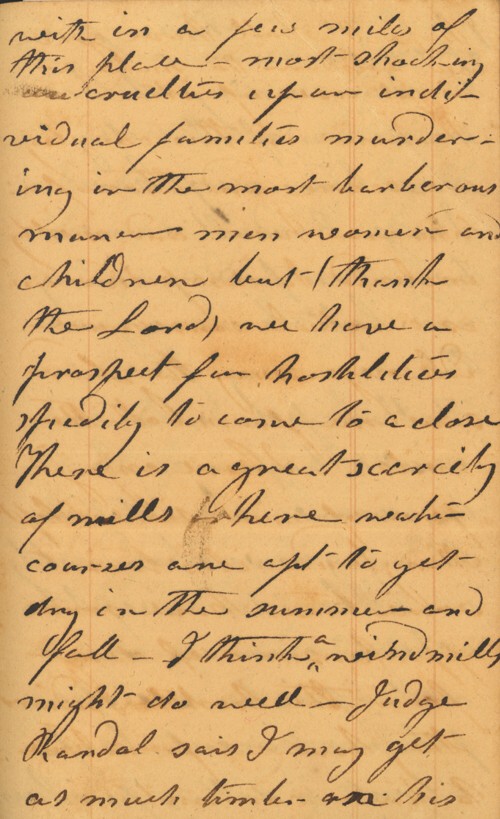 with in a few miles of
this place - most shocking
cruelties upon indi-
vidual families murder=
ing in the most barberous
maner men women and
children but (thank
the Lord) we have a
prospect for hostilities
spedily to come to a close
There is a great scarcity
of mills where water
courses are apt to get
dry in the summer and
fall - I think a windmill
might do well - Judge
Randal sais I may get
as much timber on his